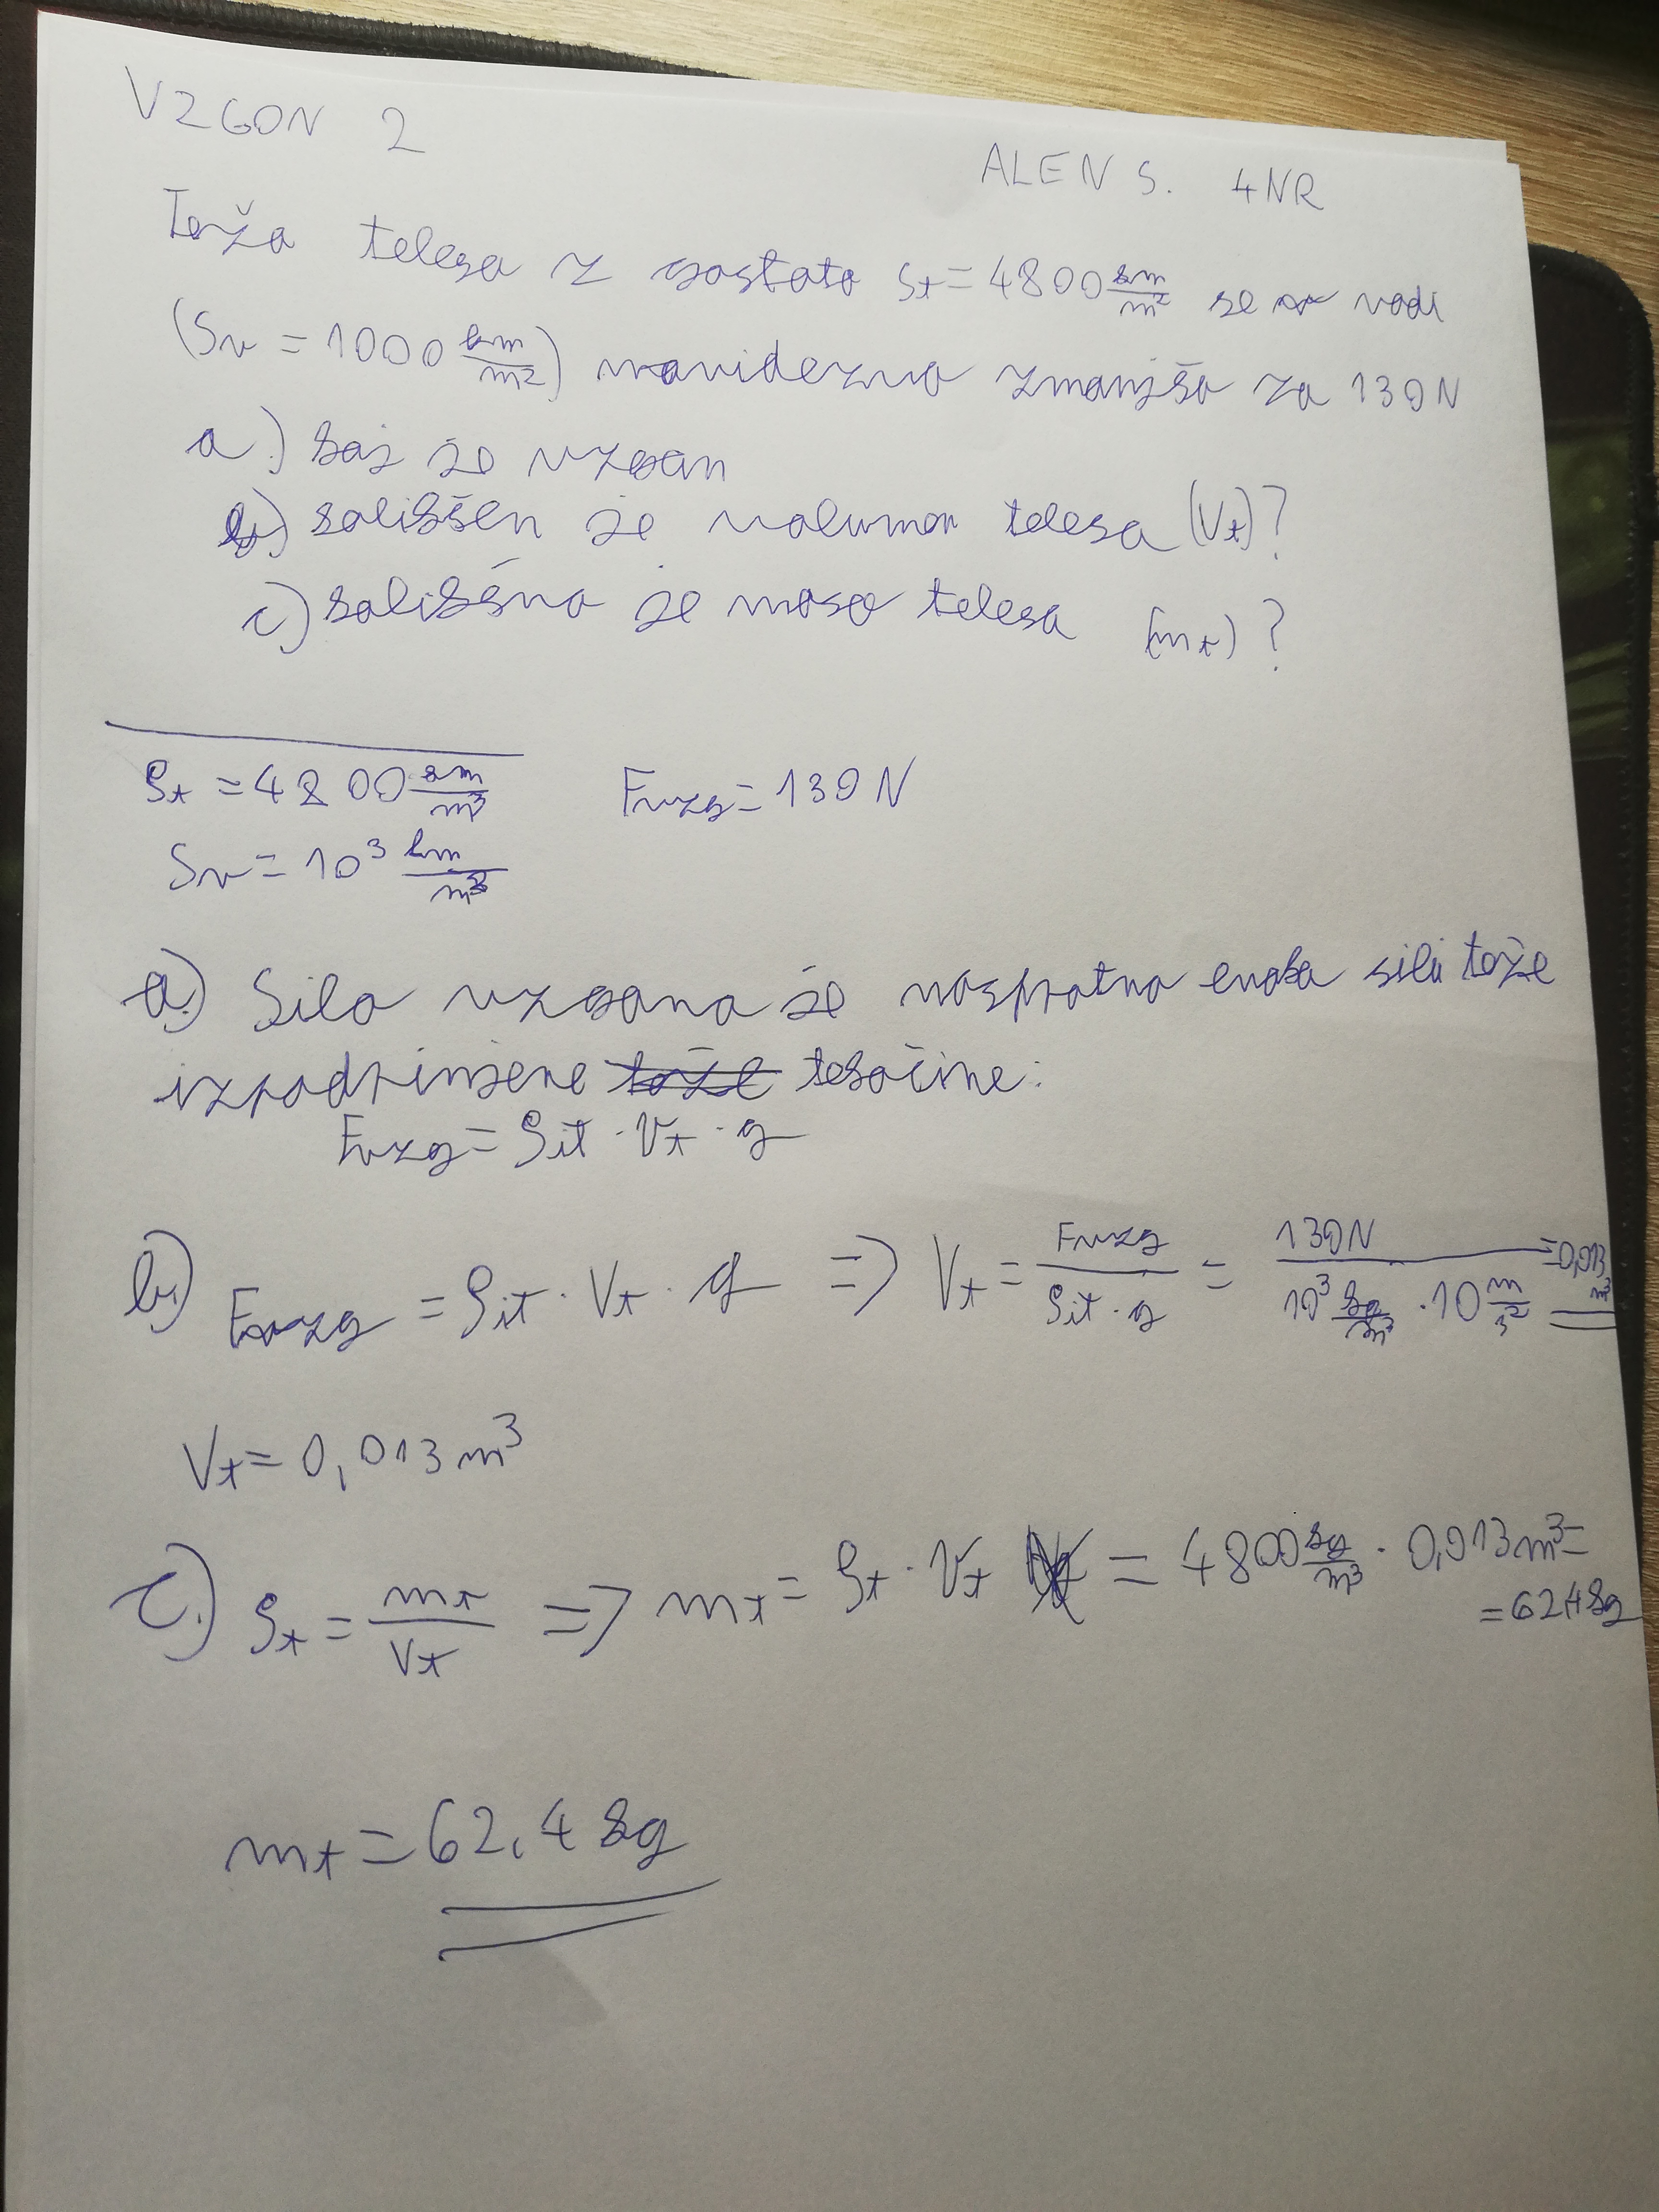 VZGON 2
ALEN S. 4NR
Teža telesa z gostoto ρt = 4800 km/m² se v vodi
(ρv = 1000 km/m²) navidezno zmanjša za 130N
a.) kaj je vzgon
b.) kolikšen je volumen telesa (Vt)?
c.) kolikšna je masa telesa (mt)?
ρt = 4800 km/m³ Fvzg = 130N
ρv = 10³ km/m³
a.) Sila vzgona je nasprotno enaka sili teže
izpodrinjene teže tekočine:
Fvzg = ρit · Vt · g
b.) Fvzg = ρit · Vt · g => Vt = Fvzg/ρit · g = 130N/10³ kg/m³ · 10 m/s² = 0,013 m³
Vt = 0,013 m³
c.) ρt = mt/Vt => mt = ρt · Vt = 4800 kg/m³ · 0,013 m³ =
= 62,4 kg
mt = 62,4 kg